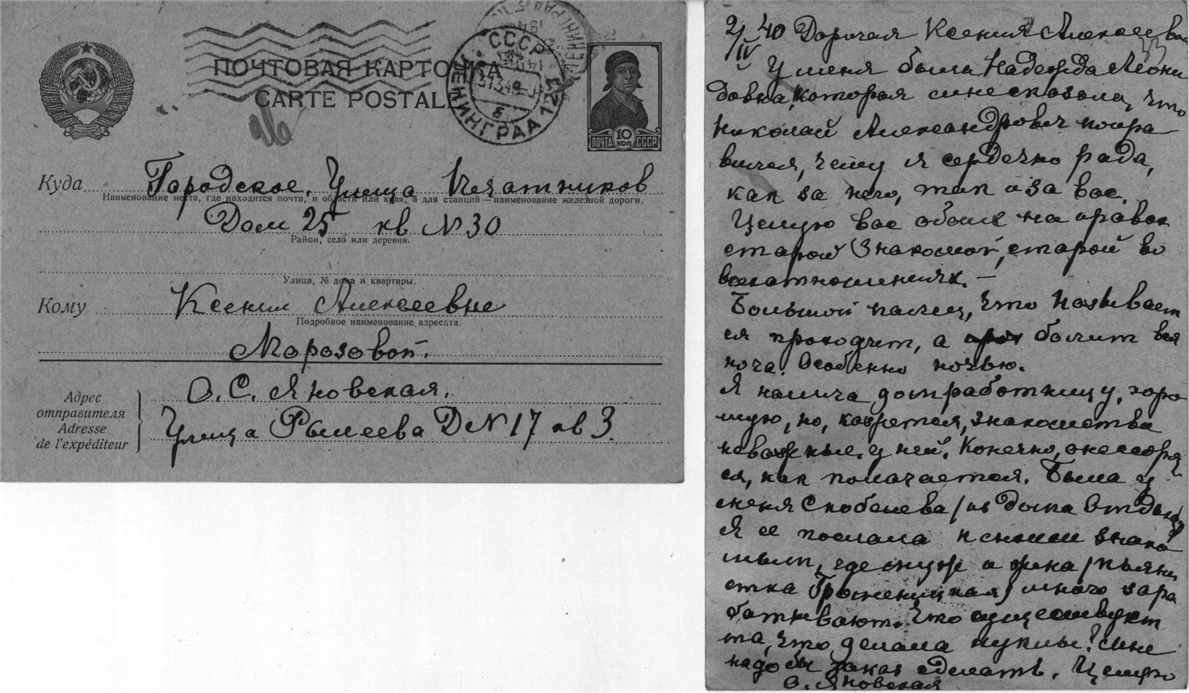 ПОЧТОВАЯ КАРТОЧКА
CARTE POSTALE
СССР
ЛЕНИНГРАД
ПОЧТА 10 КОП. СССР
Куда Городское. Улица Печатников
Наименование места, где находится почта, и области или края, а для станций—наименование железной дороги.
Дом 25 кв № 30
Район, село или деревня.
Улица, № дома и квартиры.
Кому Ксении Алексеевне
Подробное наименование адресата.
Морозовой.
Адрес
отправителя
Adresse
de l'expéditeur
О. С. Яновская.
Улица Рылеева Д № 17 кв 3.
2/IV 40 Дорогая Ксения Алексеевна
33
У меня была Надежда Леони
довна, которая мне сказала, что
Николай Александрович попра
вился, чему я сердечно рада,
как за него, так и за вас.
Целую вас обоих на правах
старой знакомой, старой во
всех отношениях.—
Большой палец, что называет
ся проходит, а болит вся
Особенно ночью.
Я нашла домработницу, хоро
шую, но, кажется, знакомства
неважные у ней. Конечно,
ся, как полагается. Была у
меня Скобелева /из Дома Отдыха/
Я ее послала к своим знако
мым, где муж и жена /
много зара
батывают. Что
та, что делала куклы? мне
надо бы заказ сделать. Целую
О. Яновская